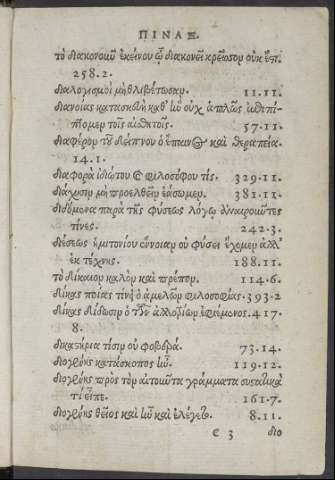 ΠΙΝΑΞ.
τὸ διακονουῦ ἐκείνου ᾧ διακονεῖ κρεῖσσον οὐκ ἔστι.
258.2.
διαλογισμοὶ μὴ θλιβέτωσαν. 11.11.
διανοίας κατασκευὴ καθ᾽ ἣν οὐχ ἁπλῶς
τοῖς αἰσθητοῖς. 57.11.
διαφέρον τοῦ δείπνου ὁ ἔπαινος καὶ θεραπεία.
14.1.
διαφορὰ ἰδιώτου καὶ φιλοσόφου τίς. 329.11.
διάχυσιν μὴ προελθεῖν ἐάσωμεν. 381.11.
διδόμενα παρὰ τῆς φύσεως λόγῳ ἀναιροῦντες
τίνες. 242.3.
διέσεως ἡμιτονίου ἔννοιαν οὐ φύσει ἔχομεν ἀλλ᾽
ἐκ τέχνης. 188.11.
τὸ δίκαιον καλὸν καὶ πρέπον. 114.6.
δίκας ποίας τίνει ὁ ἀμελῶν φιλοσοφίας. 393.2
δίκας δίδωσιν ὁ τῶν ἀλλοτρίων ἐφιέμενος. 417.
8.
δικαστήρια τίσιν οὐ φοβερά. 73.14.
διογένης κατάσκοπος ἦν. 119.12.
διογένης πρὸς τὸν αἰτοῦντα γράμματα συστατικὰ
τί εἶπε. 161.7.
διογένης θεῖος καὶ ἦν καὶ ἐλέγετο. 8.11.
e 3 διο